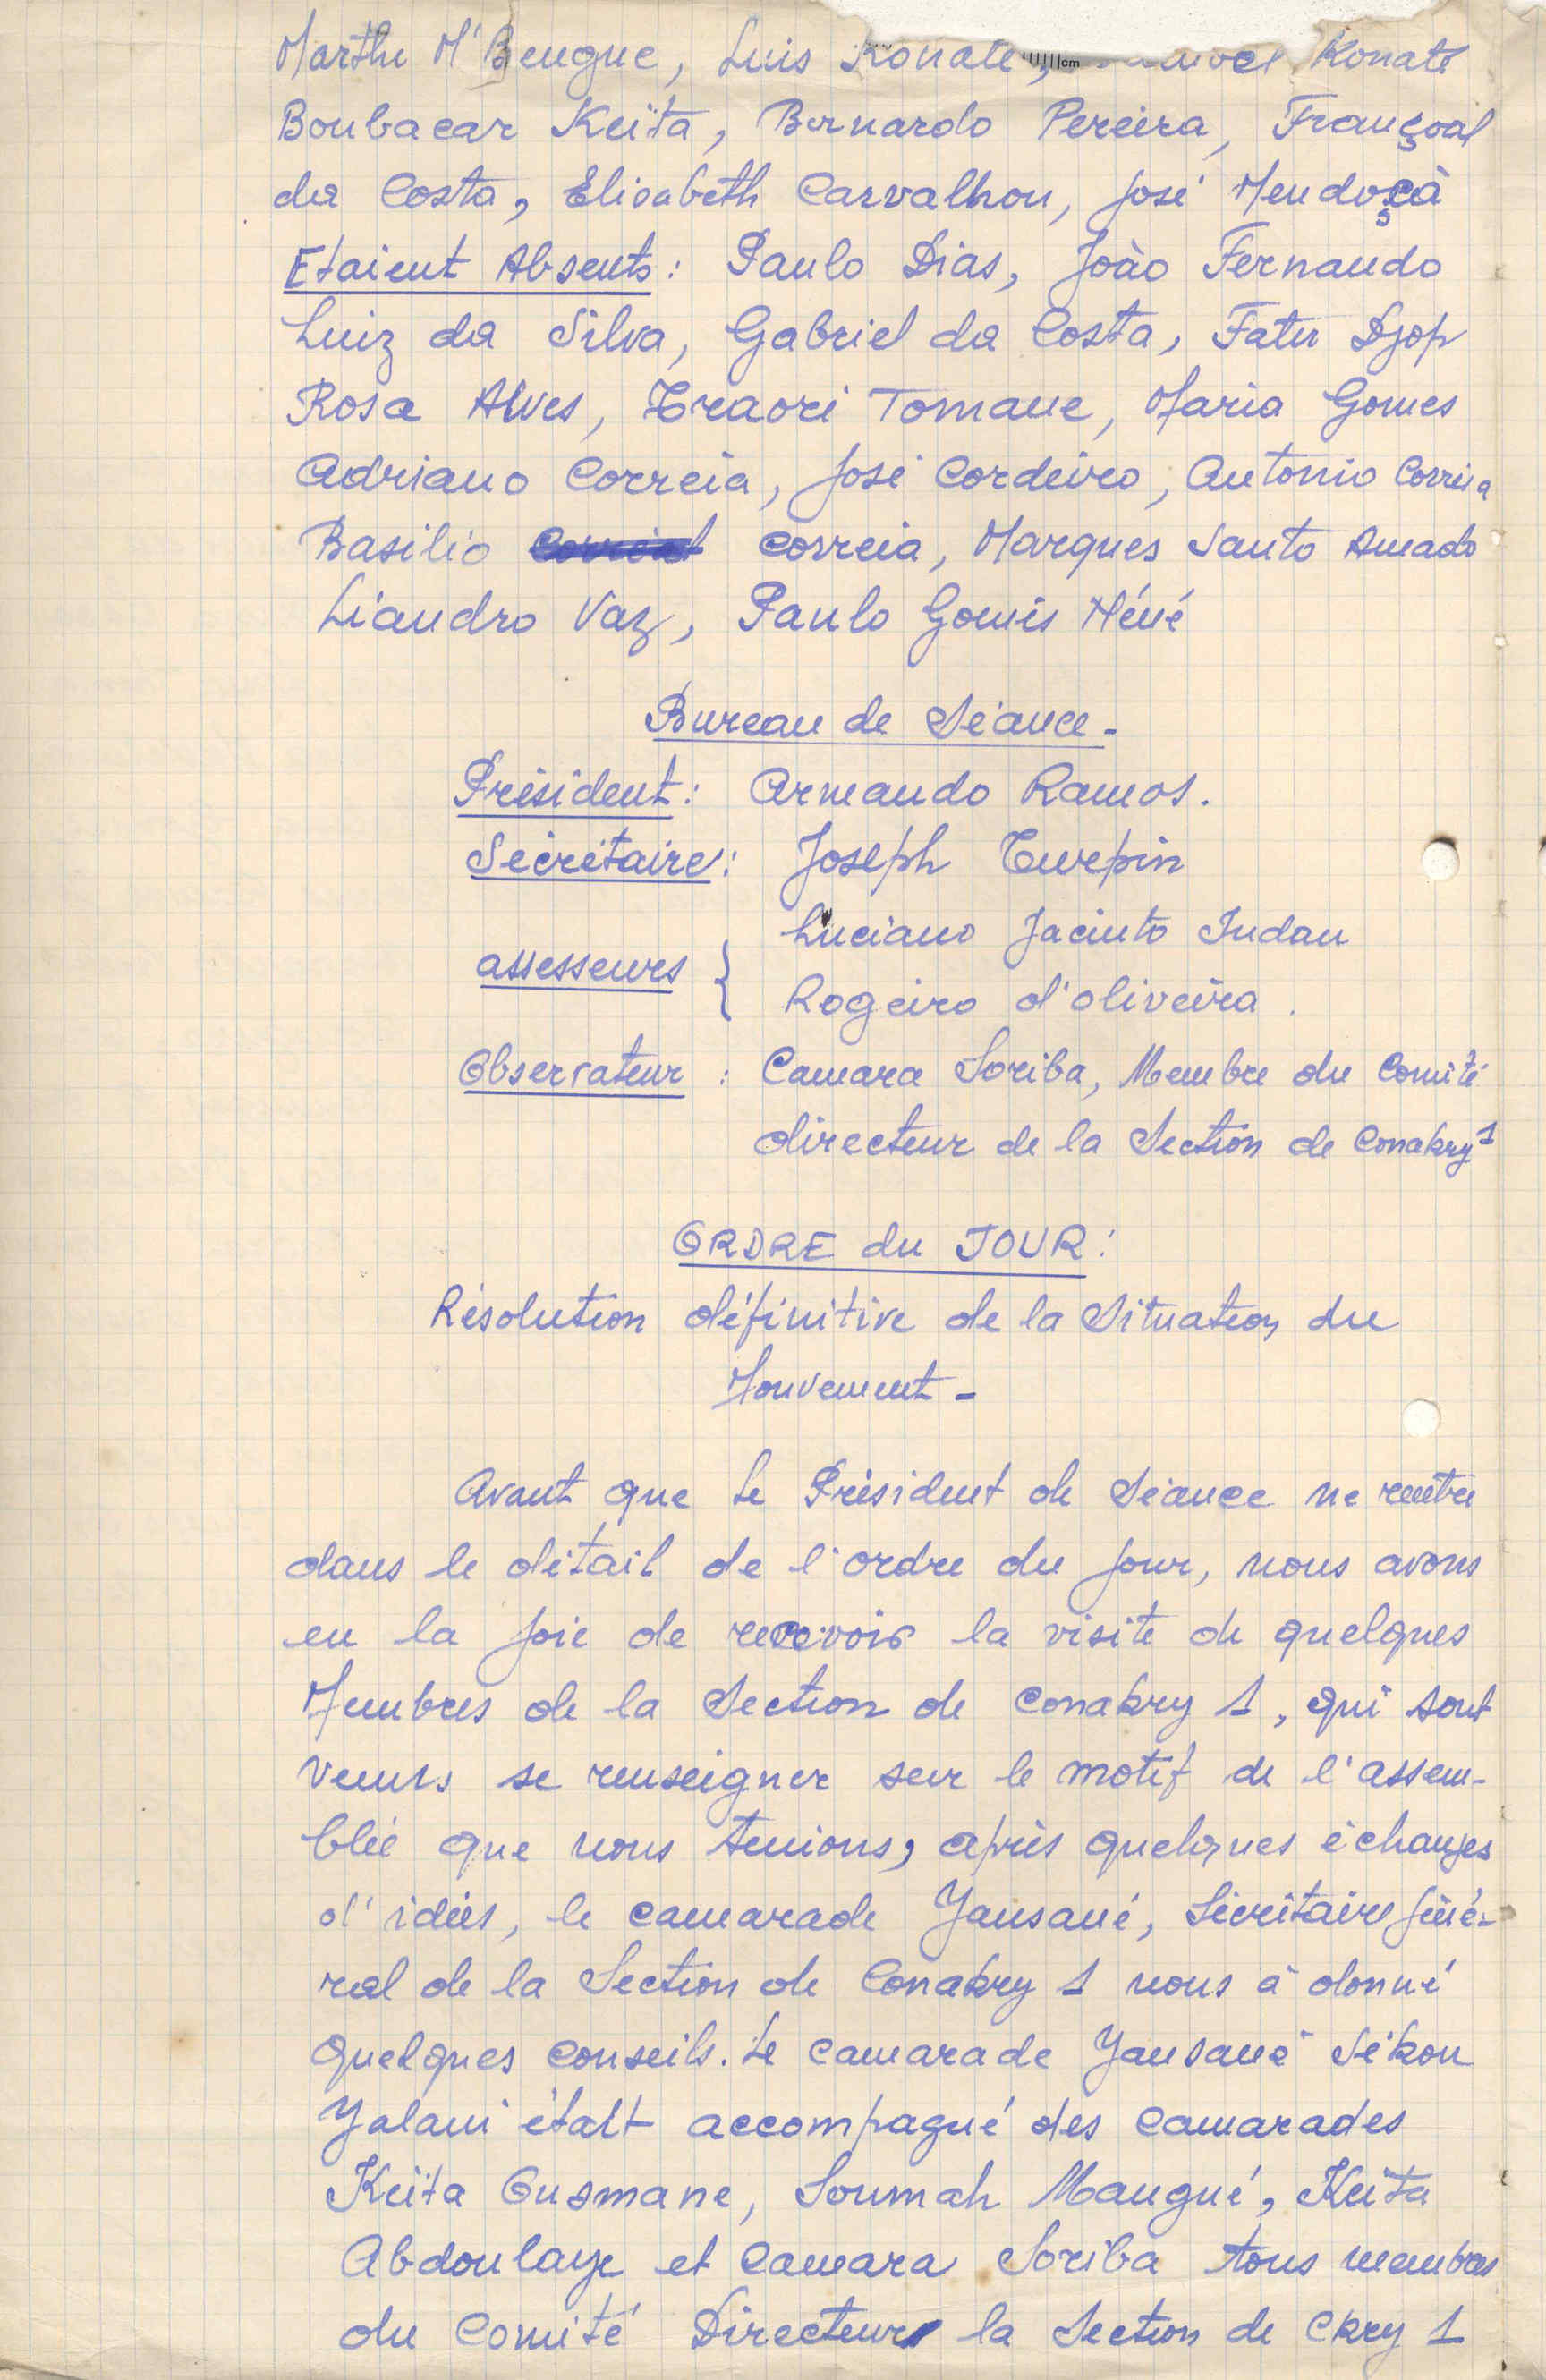 Marthe M'Bengue, Luis Konate, Konaté
Boubacar Keïta, Bernardo Pereira, Françoal
da Costa, Elisabeth Carvalhou, José Mendoçà
Etaient Absents: Paulo Dias, Joào Fernando
Luiz da Silva, Gabriel da Costa, Fatu Djop
Rosa Alves, Traoré Tomane, Maria Gomes
Adriano Correia, José Cordeiro, Antonio Correia
Basilio Correia, Marques Santo Amado
Liandro Vaz, Paulo Gomis Néné
Bureau de Séance -
Président: Armando Ramos.
Secrétaire: Joseph Turpin
assesseurs { Luciano Jacinto Indau
Rogeiro d'oliveira.
Observateur : Camara Soriba, Membre du Comité
directeur de la Section de Conakry 1
ORDRE du JOUR:
Résolution définitive de la Situation du
Mouvement -
Avant que le Président de Séance ne rentre
dans le détail de l'ordre du jour, nous avons
eu la joie de recevoir la visite de quelques
Membres de la Section de Conakry 1, qui sont
venus se renseigner sur le motif de l'assem-
blée que nous tenions, après quelques échanges
d'idées, le camarade Yansané, Sécrétaire géné-
ral de la Section de Conakry 1 nous à donné
quelques conseils. Le camarade Yansané Sékou
Yalani était accompagné des camarades
Keïta Ousmane, Soumah Mangué, Keïta
Abdoulaye et Camara Soriba tous membres
du Comité Directeur la Section de Ckry 1